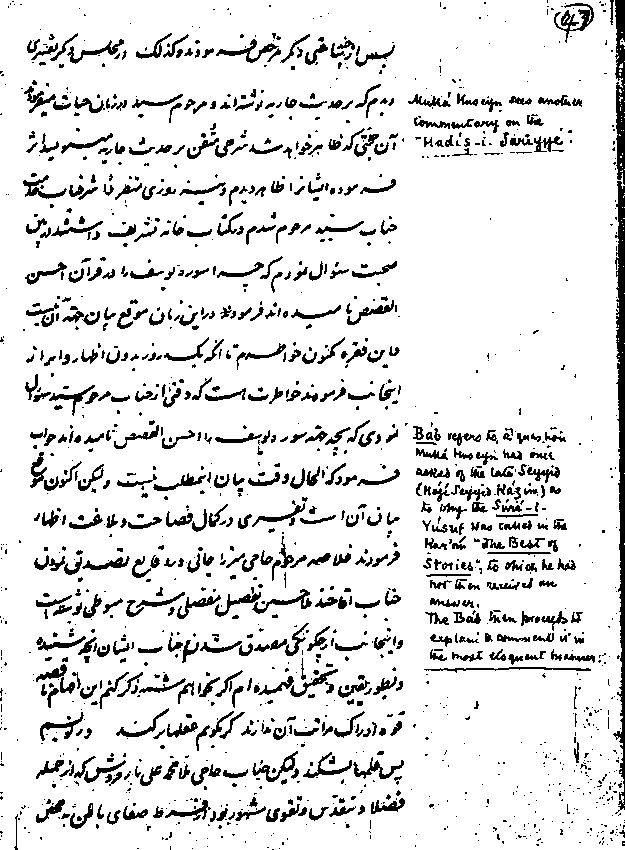 43
پس از چندی دیگر مرخص فرمودند و کذلک در مجلس دیگر تفسیری
دیدم که بر حدیث جاریه نوشته‌اند و مرحوم سید در زمان حیات میفرمودند
آن حجتی که ظاهر خواهد شد شرحی متقن بر حدیث جاریه مینویسد اثر
فرموده ایشان را ظاهر دیدم و نیز روزی
جناب سید مرحوم شدم در کتاب خانه تشریف داشتند در بین
صحبت سؤال نمودم که چرا سوره یوسف را در قرآن احسن
القصص نامیده‌اند فرمودند در این زمان موقع بیان جهة آن نیست
و این فقره مکنون خاطرم تا آنکه یک روز بدون اظهار و ابراز
اینجانب فرمودند خاطرت است که وقتی از جناب مرحوم سید سؤال
نمودی که بچه جهة سوره یوسف را احسن القصص نامیده‌اند جواب
فرمود که الحال وقت بیان اینمطلب نیست ولیکن اکنون موقع
بیان آن است و تفسیری در کمال فصاحت و بلاغت اظهار
فرمودند خلاصه مرحوم حاجی میرزا جانی در وقایع تصدیق نمودن
جناب آخوند ملا حسین تفصیل مفصلی و شرح مبسوطی نوشته است
و اینجانب از چگونگی مصدق شدن جناب ایشان آنچه شنیده
و بطور یقین و تحقیق فهمیده‌ام اگر بخواهم شمه ذکر کنم این افهام ناقصه
قوه ادراک مراتب آن ندارند گر بگویم عقلها بر کند ور نویسم
بس قلمها بشکند ولیکن جناب حاجی ملا محمد علی بارفروش که از جمله
فضلا و بتقدس و تقوی مشهور بود از فرط صفای باطن به محض
Mullá Huseyn sees another
Commentary on the
"Hadís-i-Járiyye".
Báb refers to a question
Mullá Huseyn had once
asked of the late Seyyid
(Hájí Seyyid Kázim) as
to why the Súra-i-
Yúsuf was called in the
Kur'án "The Best of
Stories", to which he had
not then received an
answer.
The Báb then proceeds to
explain & comment it in
the most eloquent manner.